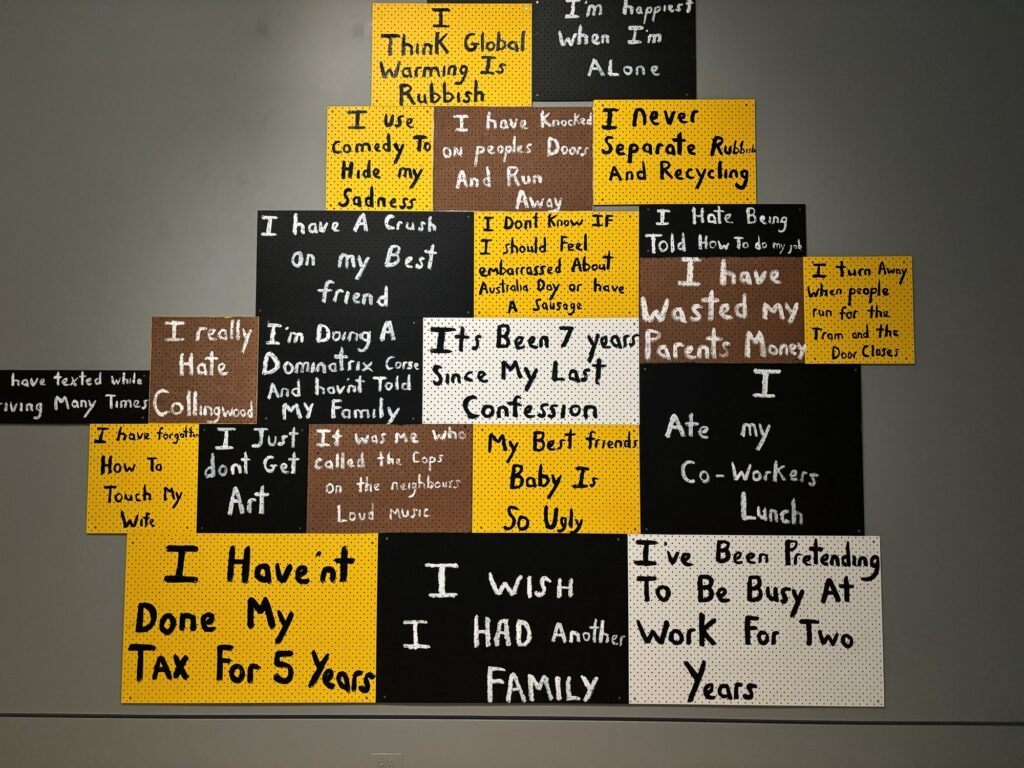 I
Think Global
Warming Is
Rubbish
I'm happiest
when I'm
ALone
I use
comedy To
Hide my
Sadness
I have Knocked
on peoples Doors
And Run
Away
I never
Separate Rubbish
And Recycling
I have A Crush
on my Best
friend
I Dont Know IF
I should Feel
embarrassed About
Australia Day or have
A Sausage
I Hate Being
Told How To do my job
I have
Wasted my
Parents Money
I turn Away
When people
run for the
Tram and the
Door Closes
have texted while
riving Many Times
I really
Hate
Collingwood
I'm Doing A
Dominatrix Corse
And havn't Told
My Family
It's Been 7 years
Since My Last
Confession
I
Ate my
Co-Workers
Lunch
I have forgotten
How To
Touch My
Wife
I Just
dont Get
Art
It was me who
called the Cops
on the neighbours
Loud Music
My Best friends
Baby Is
So Ugly
I Have'nt
Done My
TAX For 5 Years
I WISH
I HAD Another
FAMILY
I've Been Pretending
To Be Busy At
Work For Two
Years